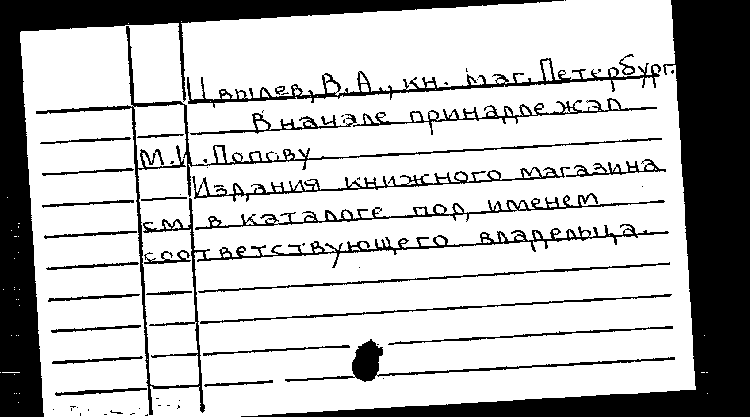 Цвылев, В. А., кн. маг. Петербург.
Вначале принадлежал
М.И. Попову
Издания книжного магазина
см. в каталоге под именем
соответствующего владельца.